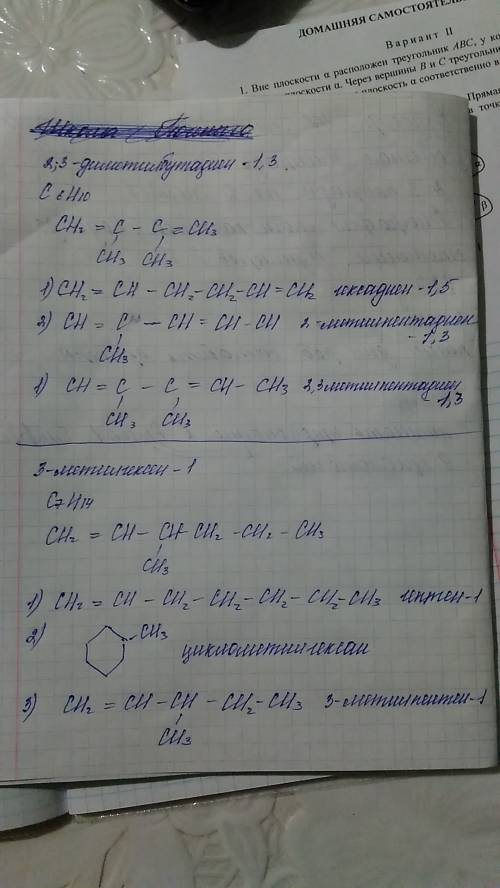 ДОМАШНЯЯ САМОСТОЯТЕЛЬ
Вариант II
1. Вне плоскости α расположен треугольник ABC, у ко
плоскости α. Через вершины B и C треугольни
плоскость α соответственно в
Прямая
в точка
α
β
2,3-диметилбутадиен-1,3
C6H10
CH2 = C - C = CH3
CH3 CH3
1) CH2 = CH - CH2 - CH2 - CH = CH2 гексадиен-1,5
2) CH = C - CH = CH - CH 2-метилпентадиен
CH3 -1,3
1) CH = C - C = CH - CH3 2,3метилпентадиен
CH3 CH3 1,3
3-метилгексен-1
C7H14
CH2 = CH - CH CH2 - CH2 - CH3
CH3
1) CH2 = CH - CH2 - CH2 - CH2 - CH2 - CH3 гептен-1
2) CH3 циклометилгексан
3) CH2 = CH - CH - CH2 - CH3 3-метилпентен-1
CH3